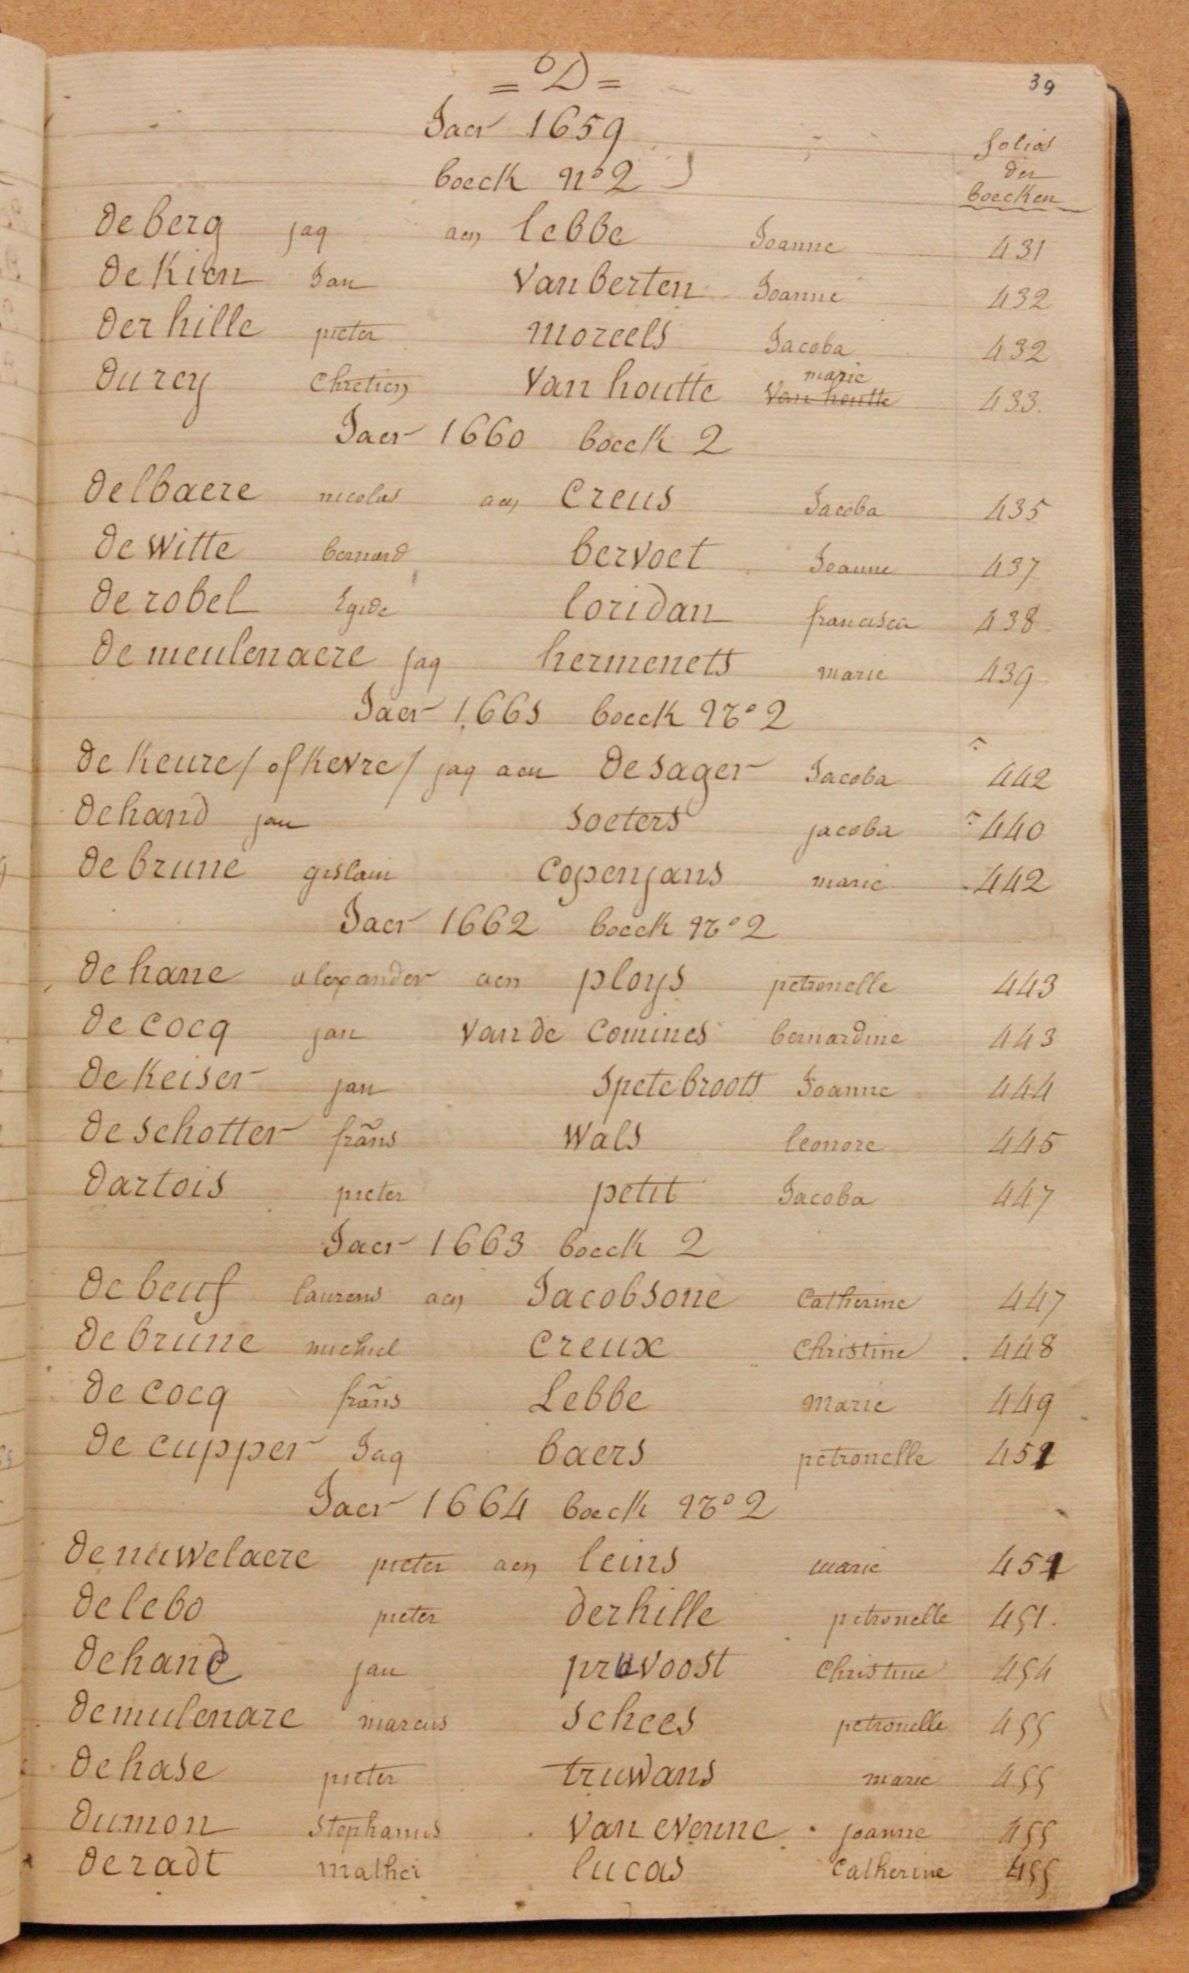 = D =
39
Jaer 1659
folios
der
boecken
boeck no 2
de berg jaq aen lebbe Joanne 431
de Kien Jan Van berten Joanne 432
Der hille pieter moreels Jacoba 432
marie
du rey Chretien Van houtte Van houtte 433
Jaer 1660 boeck 2
delbaere nicolas aen Creus Jacoba 435
de Witte bernard bervoet Joanne 437
de robel Egide loridan francisca 438
de meulenaere jaq hermenets marie 439
Jaer 1661 boeck No 2
de Keure / of Kevre / jaq aen de sager Jacoba 442
de hand jan soeters jacoba 440
de brune gislain Copenjans marie 442
Jaer 1662 boeck No 2
de hane alexander aen ploys petronelle 443
de cocq jan Van de Comines bernardine 443
de Keiser jan Spetebroott Joanne 444
de schotter frans Wals leonore 445
dartois pieter petit Jacoba 447
Jaer 1663 boeck 2
de beuf laurens aen Jacobsone Catherine 447
de brune michiel Creux Christine 448
de cocq frans Lebbe marie 449
de cupper Jaq baers petronelle 451
Jaer 1664 boeck No 2
de nuwelaere pieter aen leins marie 451
de lebo pieter derhille petronelle 451
de hane jan pruvoost Christine 454
de mulenare marcus Schees petronelle 455
de hase pieter truwans marie 455
dumon Stephanus Van evenne joanne 455
de radt mathei lucas Catherine 455